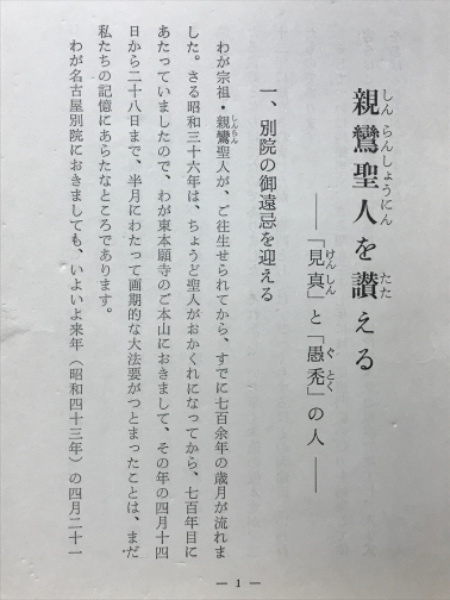 親鸞聖人を讃える
しんらんしょうにん
たた
――「見真」と「愚禿」の人――
けんしん
ぐとく
一、別院の御遠忌を迎える
わが宗祖・親鸞聖人が、ご往生せられてから、すでに七百余年の歳月が流れま
しんらん
した。さる昭和三十六年は、ちょうど聖人がおかくれになってから、七百年目に
あたっていましたので、わが東本願寺のご本山におきまして、その年の四月十四
日から二十八日まで、半月にわたって画期的な大法要がつとまったことは、まだ
私たちの記憶にあらたなところであります。
わが名古屋別院におきましても、いよいよ来年（昭和四十三年）の四月二十一
― 1 ―